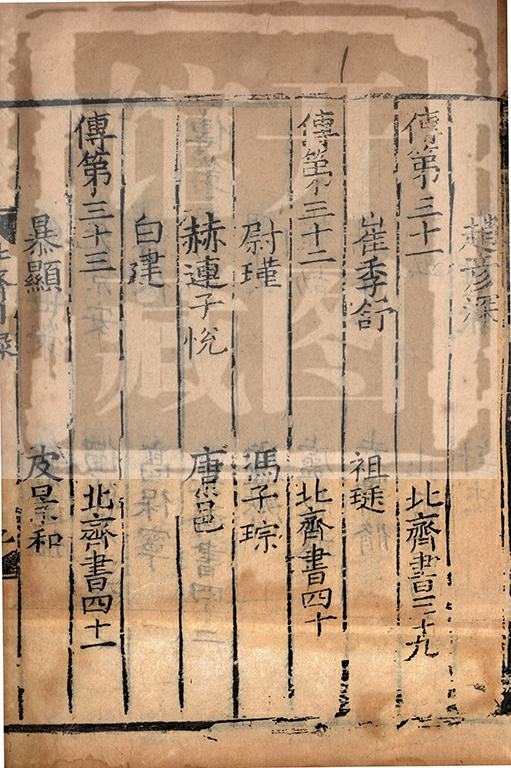 趙彦深
傳第三十一 北齊書三十九
崔季舒 祖珽
傳第三十二 北齊書四十
尉瑾 馮子琮
赫連子悅 唐邕
白建
傳第三十三 北齊書四十一
暴顯 皮景和